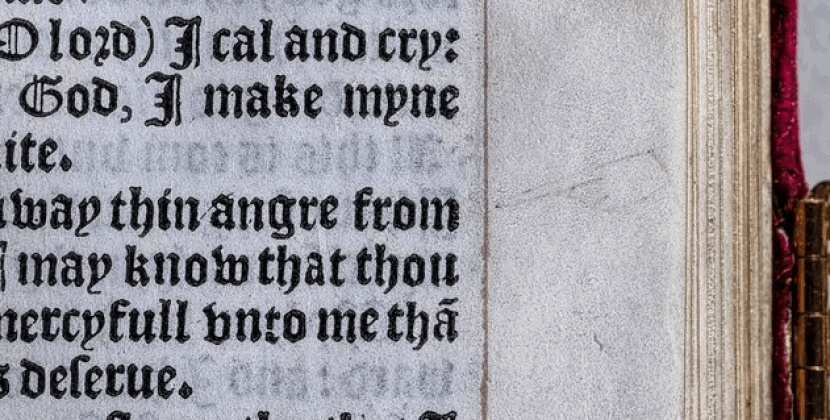 O lord) I cal and cry:
God, I make myne
ite.
way thin angre from
I may know that thou
mercyfull vnto me thã
s deserue.